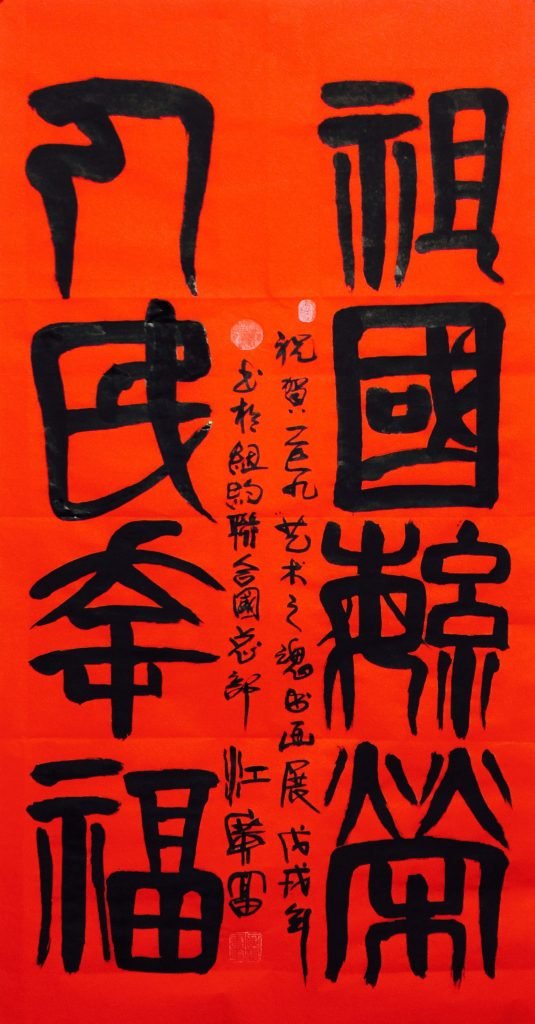 祖國繁榮
祝賀二〇一九艺术之魂书画展 戊戌年
书於紐約聯合國总部 江
人民幸福